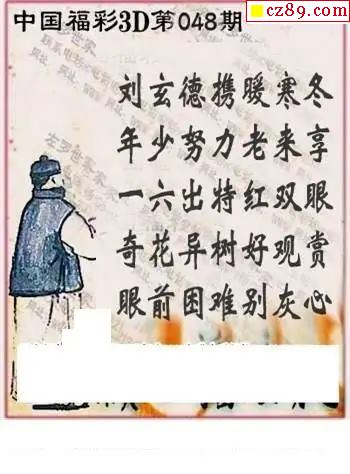 cz89.com
中国福彩3D第048期
刘玄德携暖寒冬
年少努力老来享
一六出特红双眼
奇花异树好观赏
眼前困难别灰心